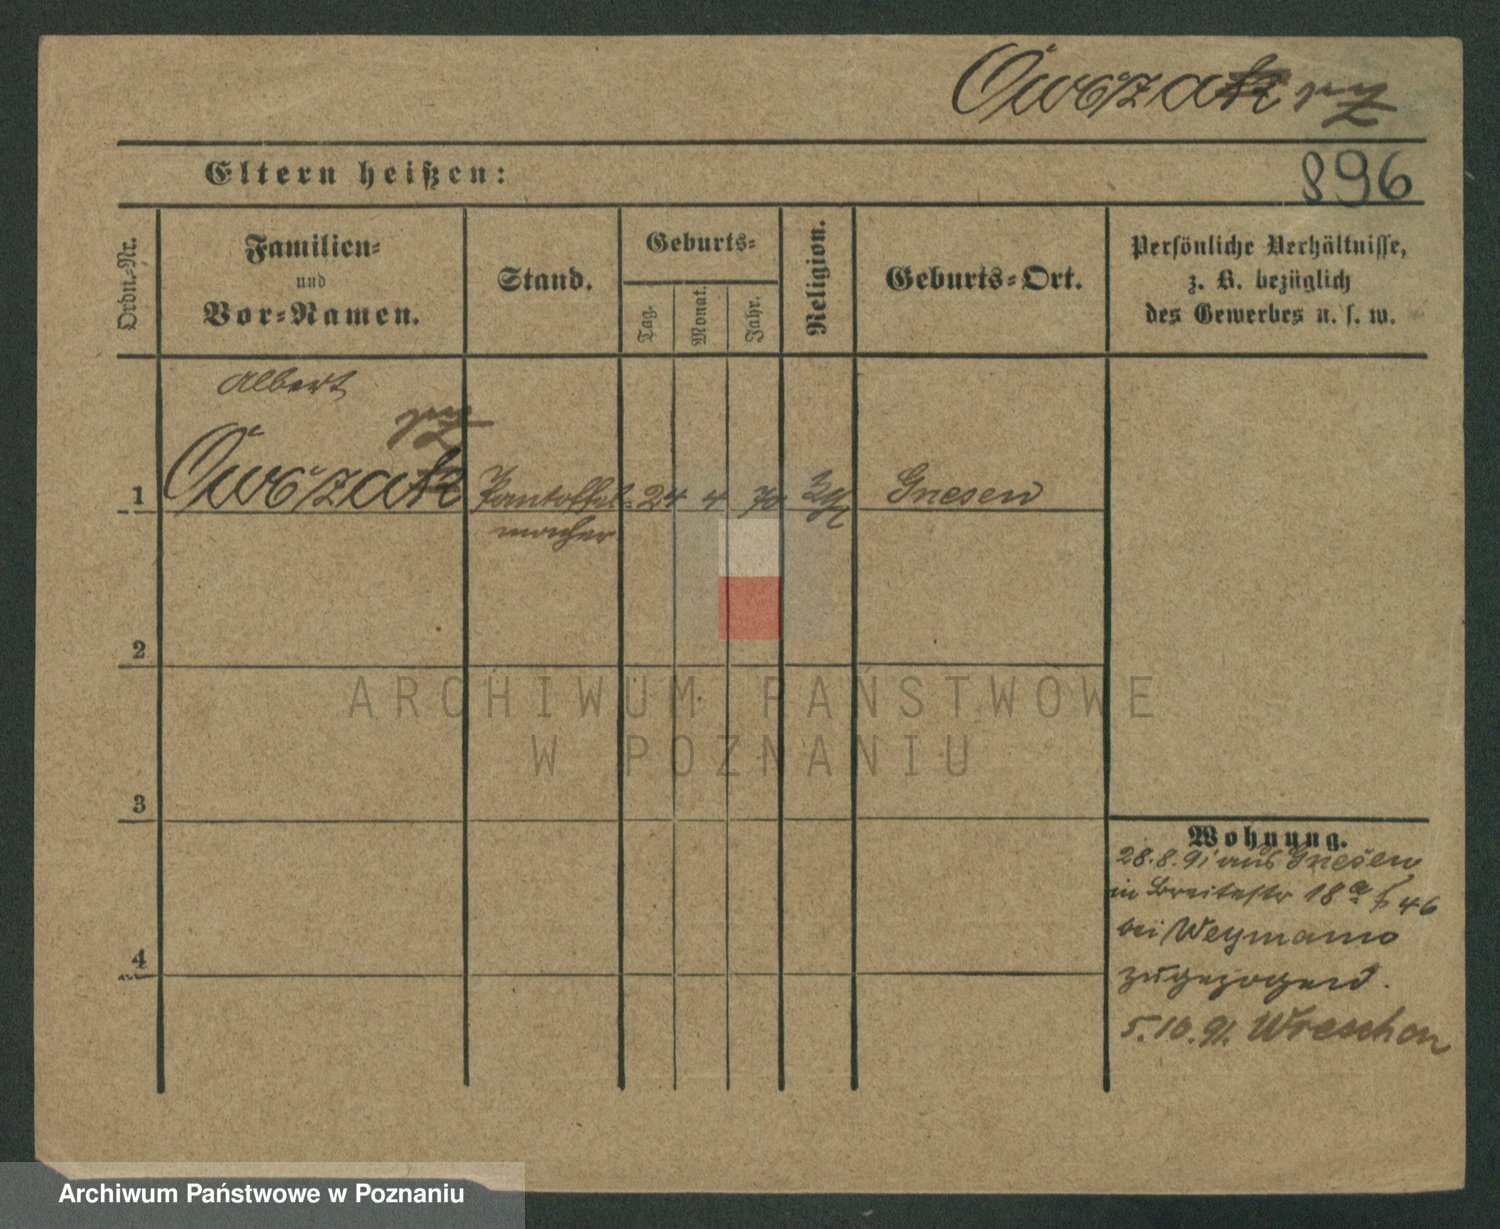 Owczak
896
Eltern heißen:
Ordn.-Nr.
Familien-
und
Vor-Namen.
Stand.
Geburts-
Tag.
Monat.
Jahr.
Religion.
Geburts-Ort.
Persönliche Verhältnisse,
z. B. bezüglich
des Gewerbes u. s. w.
Albert
1 Owczak Pantoffel- 24 4 70 Gnesen
macher
2
3
4
Wohnung.
28.8.91 aus Gnesen
in Breitestr 18a 46
bei Weymann
zugezogen.
5.10.91. Wreschen
ARCHIWUM PAŃSTWOWE
W POZNANIU
Archiwum Państwowe w Poznaniu